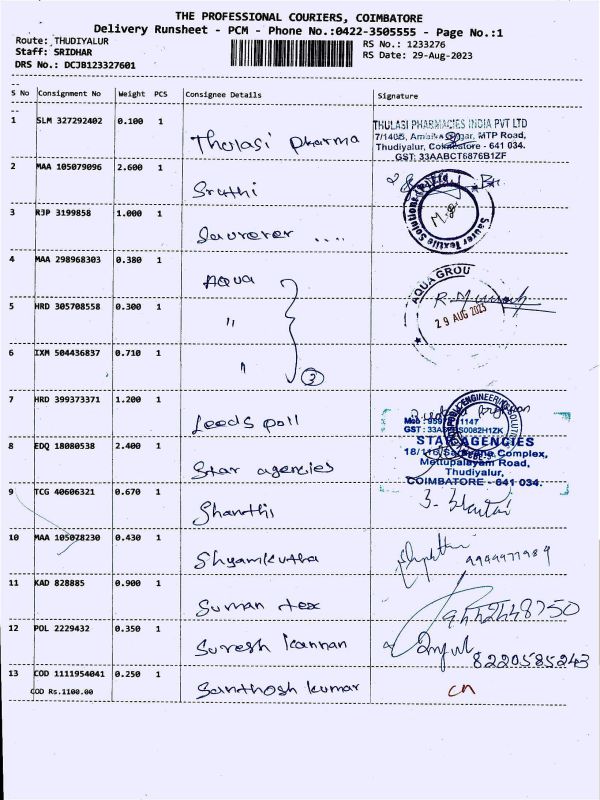 THE PROFESSIONAL COURIERS, COIMBATORE
Delivery Runsheet - PCM - Phone No.:0422-3505555 - Page No.:1
Route: THUDIYALUR
Staff: SRIDHAR
DRS No.: DCJB123327601
RS No.: 1233276
RS Date: 29-Aug-2023
S No Consignment No Weight PCS Consignee Details Signature
1 SLM 327292402 0.100 1 Thulasi pharma
THULASI PHARMACIES INDIA PVT LTD
MTP Road,
Thudiyalur, Coimbatore - 641 034.
GST: 33AABCT6876B1ZF
2 MAA 105079096 2.600 1 Sruthi
3 RJP 3199858 1.000 1
Saurer Textile Solutions
4 MAA 298968303 0.380 1 AQUA
AQUA GROU
29 AUG 2023
5 HRD 305708558 0.300 1 "
6 IXM 504436837 0.710 1 "
3
7 HRD 399373371 1.200 1 Leeds poll
8 EDQ 18080538 2.400 1 Star agencies
STAR AGENCIES
Complex,
Mettupalayam Road,
Thudiyalur,
COIMBATORE - 641 034.
9 TCG 40606321 0.670 1 Shanthi
10 MAA 105078230 0.430 1 Shyamkutha
11 KAD 828885 0.900 1 Suman tex
12 POL 2229432 0.350 1 Suresh kannan
8220585243
13 COD 1111954041 0.250 1 Santhosh kumar
COD Rs.1100.00